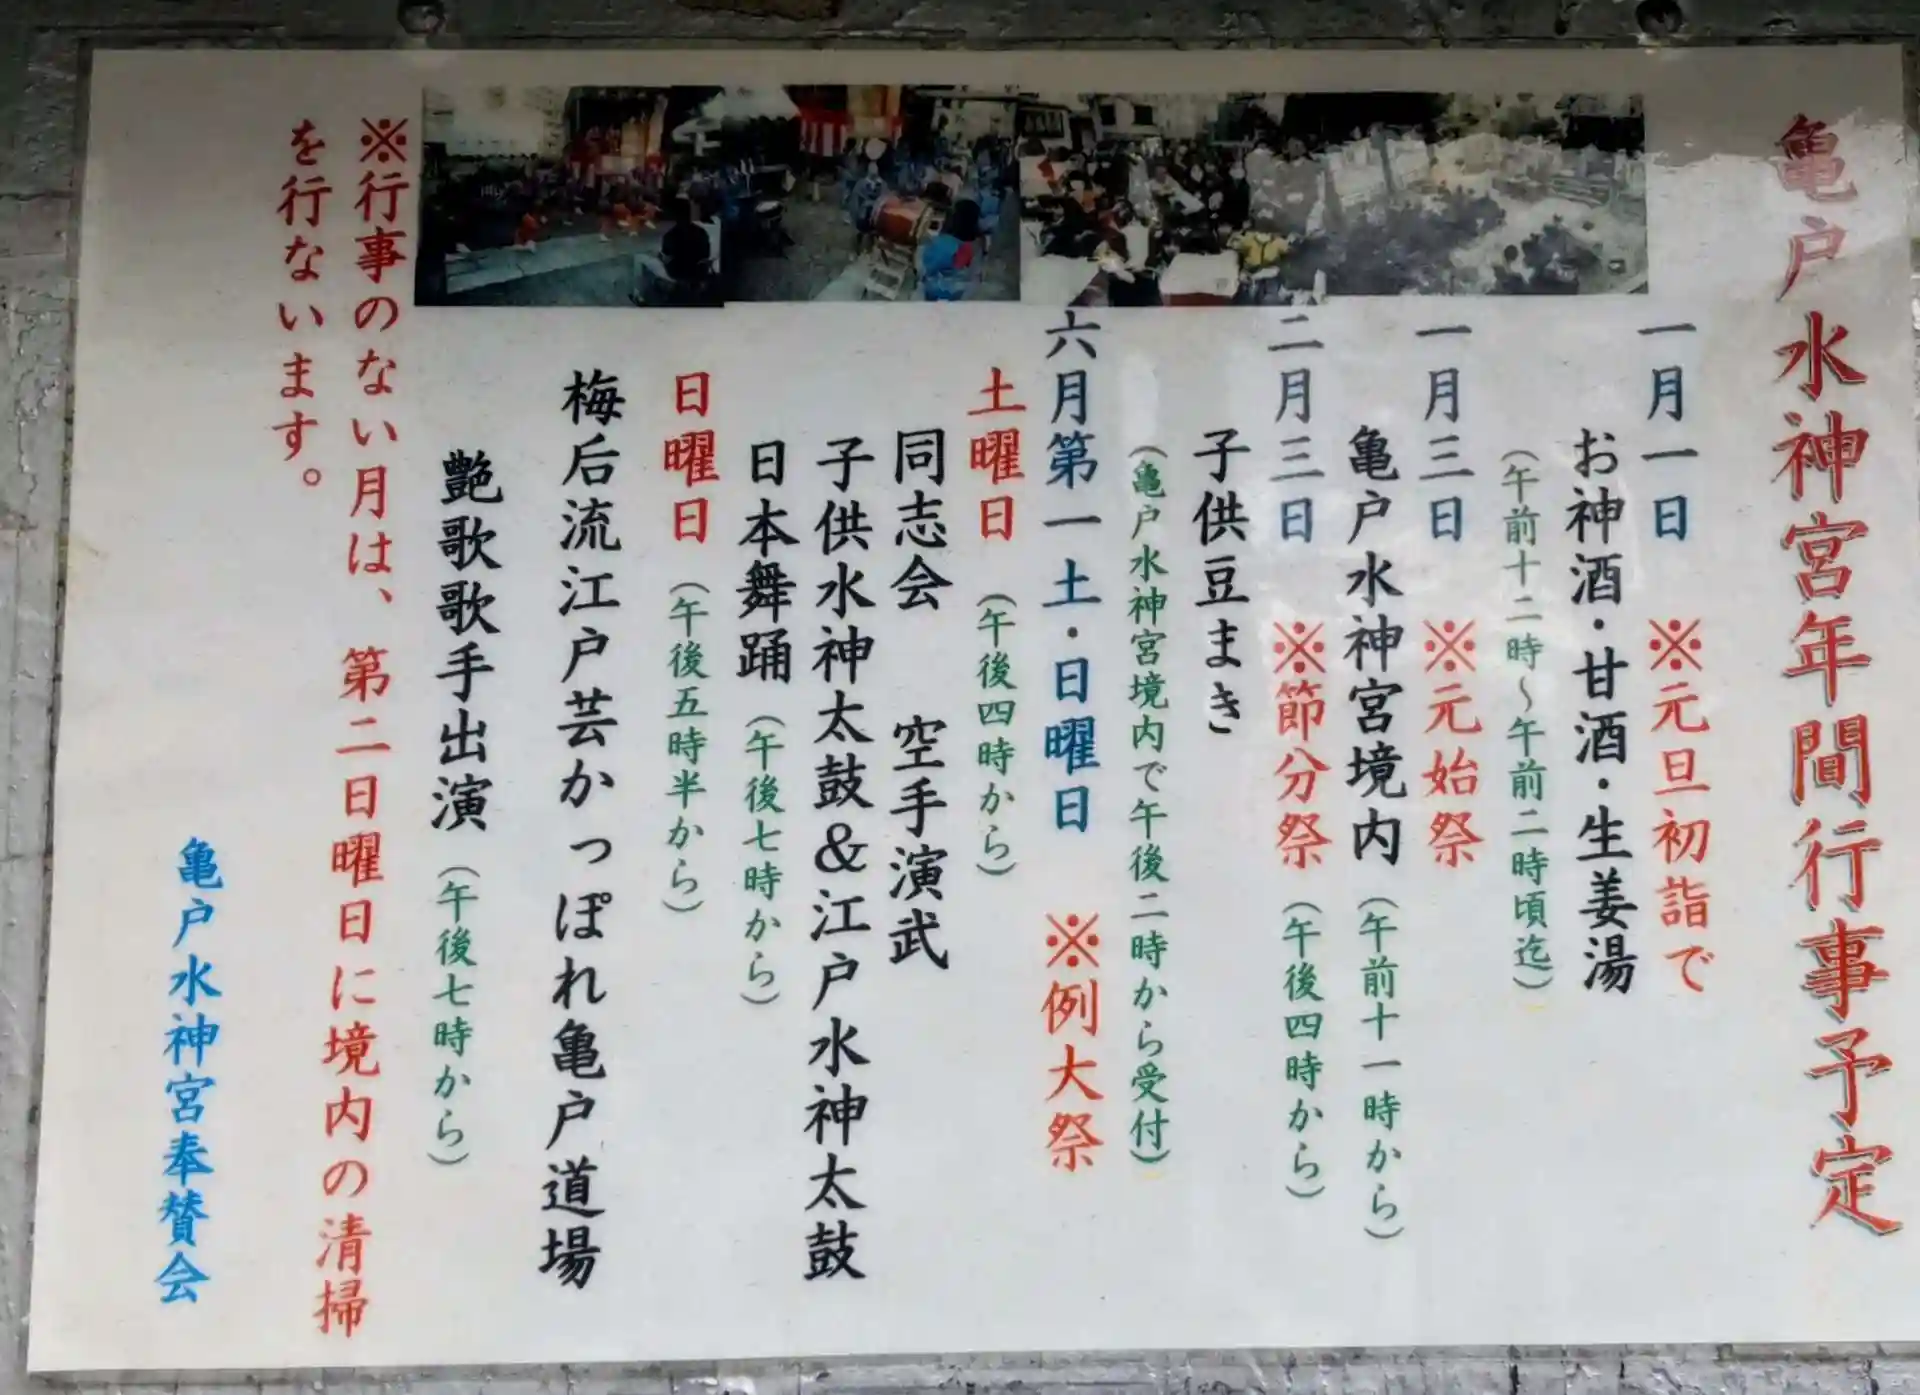 亀戸水神宮年間行事予定
一月一日 ※元旦初詣で
お神酒・甘酒・生姜湯
（午前十二時～午前二時頃迄）
一月三日 ※元始祭
亀戸水神宮境内（午前十一時から）
二月三日 ※節分祭（午後四時から）
子供豆まき
（亀戸水神宮境内で午後二時から受付）
六月第一土・日曜日 ※例大祭
土曜日（午後四時から）
同志会 空手演武
子供水神太鼓＆江戸水神太鼓
日本舞踊（午後七時から）
日曜日（午後五時半から）
梅后流江戸芸かっぽれ亀戸道場
艶歌歌手出演（午後七時から）
※行事のない月は、第二日曜日に境内の清掃
を行ないます。
亀戸水神宮奉賛会